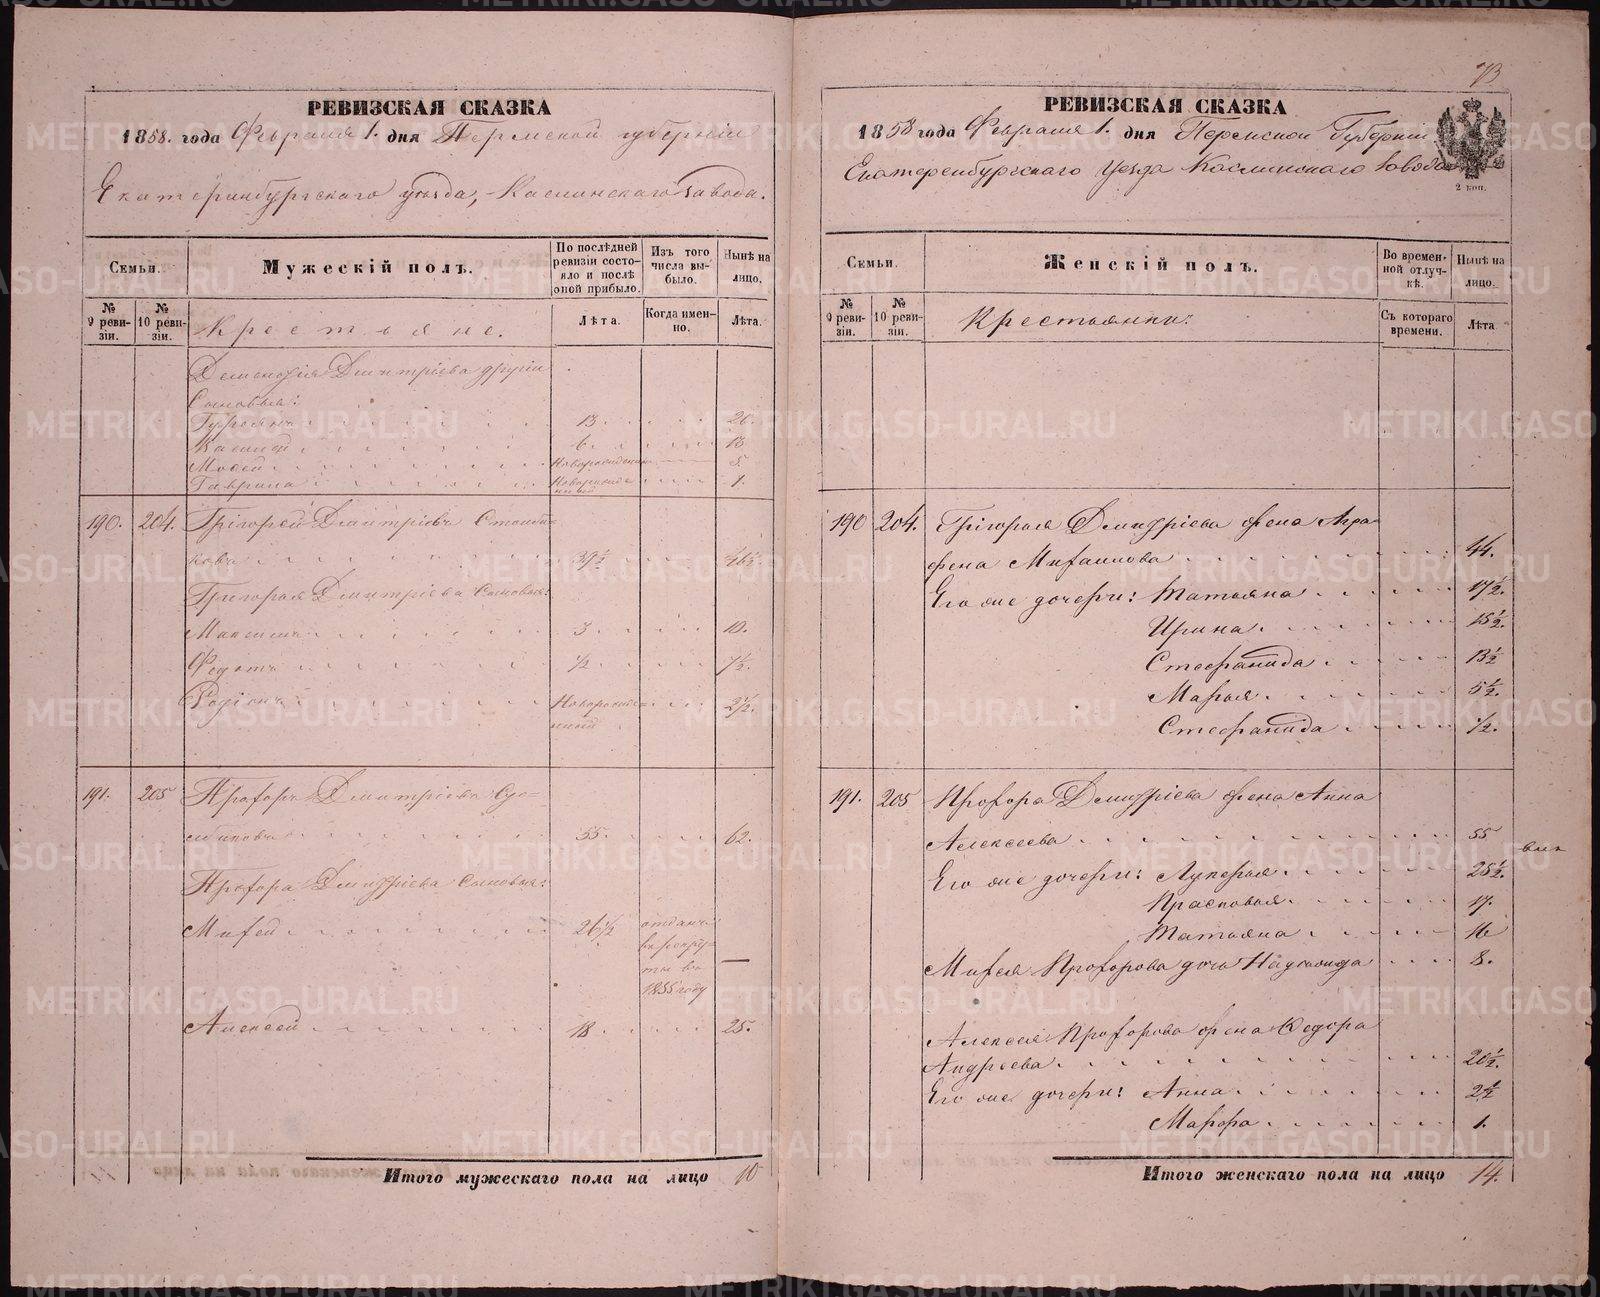 РЕВИЗСКАЯ СКАЗКА
1858. года Февраля 1. дня Пермской губерніи
Екатеринбургскаго уѣзда, Каслинскаго завода.
Семьи.
Мужескій полъ.
По послѣдней ревизіи состояло и послѣ оной прибыло.
Изъ того числа выбыло.
Нынѣ на лицо.
№ 9 ревизіи.
№ 10 ревизіи.
Крестьяне.
Лѣта.
Когда именно.
Лѣта.
Дмитріева другіе
Сыновья:
13. 20.
Василій 6. 13
Мосей Новорожденный 5.
Гаврила Новорожденный 1.
190. 204. Григорей Дмитріевъ
ковъ 39½ 46½.
Григорья Дмитріева Сыновья:
Максимъ 3. 10.
Федотъ ½ 7½.
Родіонъ Новорожденный 2½.
191. 205 Прохоръ Дмитріевъ
55. 62.
Прохора Дмитріева Сыновья:
Михей 26½ отданъ въ рекруты въ 1855 году —
Алексей 18. 25.
Итого мужескаго пола на лицо 10
73
РЕВИЗСКАЯ СКАЗКА
1858 года Февраля 1. дня Пермской Губерніи
Екатеренбургскаго уезда Каслинскаго Завода
2 коп.
Семьи.
Женскій полъ.
Во временной отлучкѣ.
Нынѣ на лицо.
№ 9 ревизіи.
№ 10 ревизіи.
Крестьянки:
Съ котораго времени.
Лѣта.
190 204. Григорья Дмитріева жена Агра-
фена Михаилова 44.
Его же дочери: Татьяна 17½.
Ирина 15½.
Стефанида 13½
Марья 5½.
Стефанида ½.
191. 205 Прохора Дмитріева жена Анна
Алексеева 55
Его же дочери: Лукерья 25½.
Прасковья 17.
Татьяна 16
Михея Прохорова дочь 8.
Алексея Прохорова жена Федора
Андреева 20½.
Его же дочери: Анна 2½
Марфа 1.
Итого женскаго пола на лицо 14.
METRIKI.GASO-URAL.RU